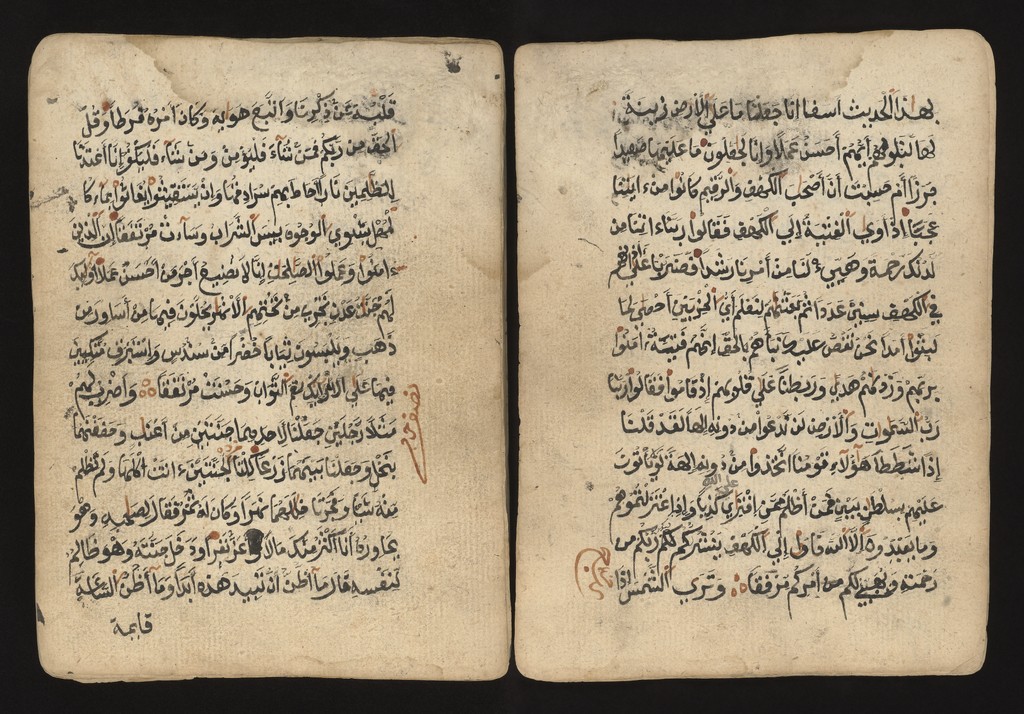 بهذا الحديث اسفا انا جعلنا ما على الأرض زينة
لها لنبلوهم أيهم أحسن عملا وإنا لجعلون ما عليها صعيدا
جرزا أم حسبت أن أصحب الكهف والرقيم كانوا من ءايتنا
عجبا إذ أوي الفتية إلي الكهف فقالوا ربنا ءاتنا من
لدنك رحمة وهيئ لنا من أمرنا رشدا فضربنا علي ءاذانهم
في الكهف سنين عددا ثم بعثنهم لنعلم أي الحزبين أحصى لما
لبثوا امدا نحن نقص عليك نبأهم بالحق إنهم فتية ءامنوا
بربهم وزدنهم هدي وربطنا علي قلوبهم إذ قاموا فقالوا ربنا
رب السموات والأرض لن ندعوا من دونه إلها لقد قلنا
إذا شططا هؤلاء قومنا اتخذوا من دونه ءالهة لولا ياتون
عليهم بسلطن بين فمن أظلم ممن افتري على الله كذبا وإذ اعتزلتموهم
وما يعبدون إلا الله فأوا إلي الكهف ينشر لكم ربكم من
رحمته ويهيئ لكم من أمركم مرفقا وتري الشمس إذا
قلبه عن ذكرنا واتبع هويه وكان أمره فرطا وقل
الحق من ربكم فمن شاء فليؤمن ومن شاء فليكفر إنا أعتدنا
للظلمين نارا أحاط بهم سرادقها وإن يستغيثوا يغاثوا بماء كا
لمهل يشوي الوجوه بيس الشراب وساءت مرتفقا إن الذين
ءامنوا وعملوا الصلحت إنا لا نضيع أجر من أحسن عملا أوليك
لهم جنت عدن تجري من تحتهم الأنهر يحلون فيها من أساور من
ذهب ويلبسون ثيابا خضرا من سندس وإستبرق متكيين
فيها علي الأرايك نعم الثواب وحسنت مرتفقا واضرب لهم
مثلا رجلين جعلنا لأحدهما جنتين من أعنب وحففنهما
بنخل وجعلنا بينهما زرعا كلتا الجنتين ءاتت اكلها ولم تظلم
منه شيا وفجرنا خللهما نهرا وكان له ثمر فقال لصحبه وهو
يحاوره أنا أكثر منك مالا وأعز نفرا ودخل جنته وهو ظالم
لنفسه قال ما أظن أن تبيد هذه أبدا وما أظن الساعة
قايمة